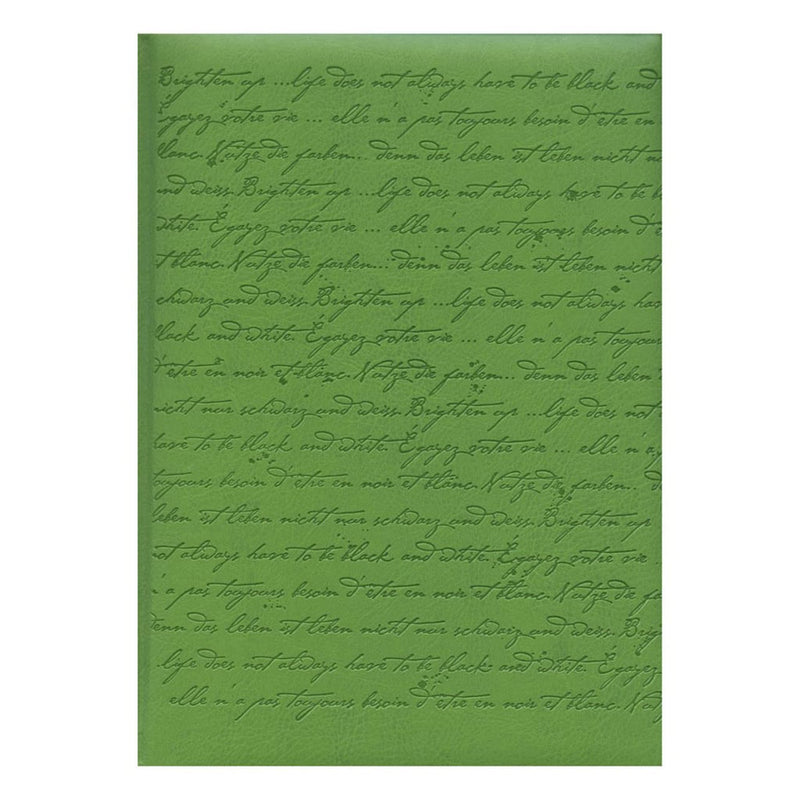 Brighten up ...life does not always have to be black and
Égayez votre vie ... elle n'a pas toujours besoin d'etre en
blanc. Nutze die farben... denn das leben ist leben nicht n
und weiss. Brighten up ...life does not always have to be b
white. Égayez votre vie ... elle n'a pas toujours besoin d'ê
t blanc. Nutze die farben... denn das leben ist leben nicht
schwarz and weiss. Brighten up ...life does not always ha
lack and white. Égayez votre vie ... elle n'a pas toujours
d'etre en noir et blanc. Nutze die farben... denn das leben
nicht nur schwarz and weiss. Brighten up ...life does not
have to be black and white. Égayez votre vie ... elle n'a
toujours besoin d'être en noir et blanc. Nutze die farben... d
leben ist leben nicht nur schwarz and weiss. Brighten up
ot always have to be black and white. Égayez votre vie ..
n'a pas toujours besoin d'être en noir et blanc. Nutze die fa
enn das leben ist leben nicht nur schwarz and weiss. Brig
life does not always have to be black and white. Égayez
elle n'a pas toujours besoin d'etre en noir et blanc. Nut